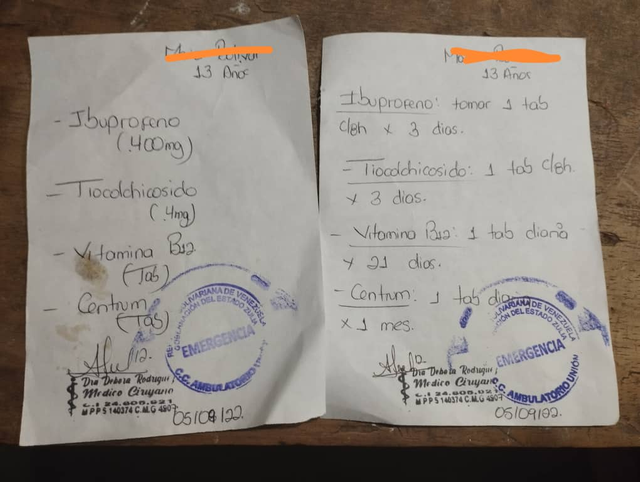 13 Años
- Ibuprofeno
(.400mg)
- Tiocolchicosido
(.4mg)
- Vitamina B12
(Tab)
- Centrum
(Tab)
BOLIVARIANA DE VENEZUELA
GOBERNACIÓN DEL ESTADO ZULIA
EMERGENCIA
C.C. AMBULATORIO
Dra Debora
Medico Cirujano
C.I 24.605.021
M P P S 140374 C.M.G
05/09/22.
13 Años
Ibuprofeno: tomar 1 tab
c/8h x 3 dias.
- Tiocolchicosido: 1 tab c/8h.
x 3 dias.
- Vitamina B12: 1 tab diaria
x 21 dias.
- Centrum: 1 tab
x 1 mes.
BOLIVARIANA DE VENEZUELA
DEL ESTADO ZULIA
EMERGENCIA
C.C. AMBULATORIO UNIÓN
Dra Debora
Medico Cirujano
C.I 24.605.021
M P P S 140374 C.M.G 4907
05/09/22.